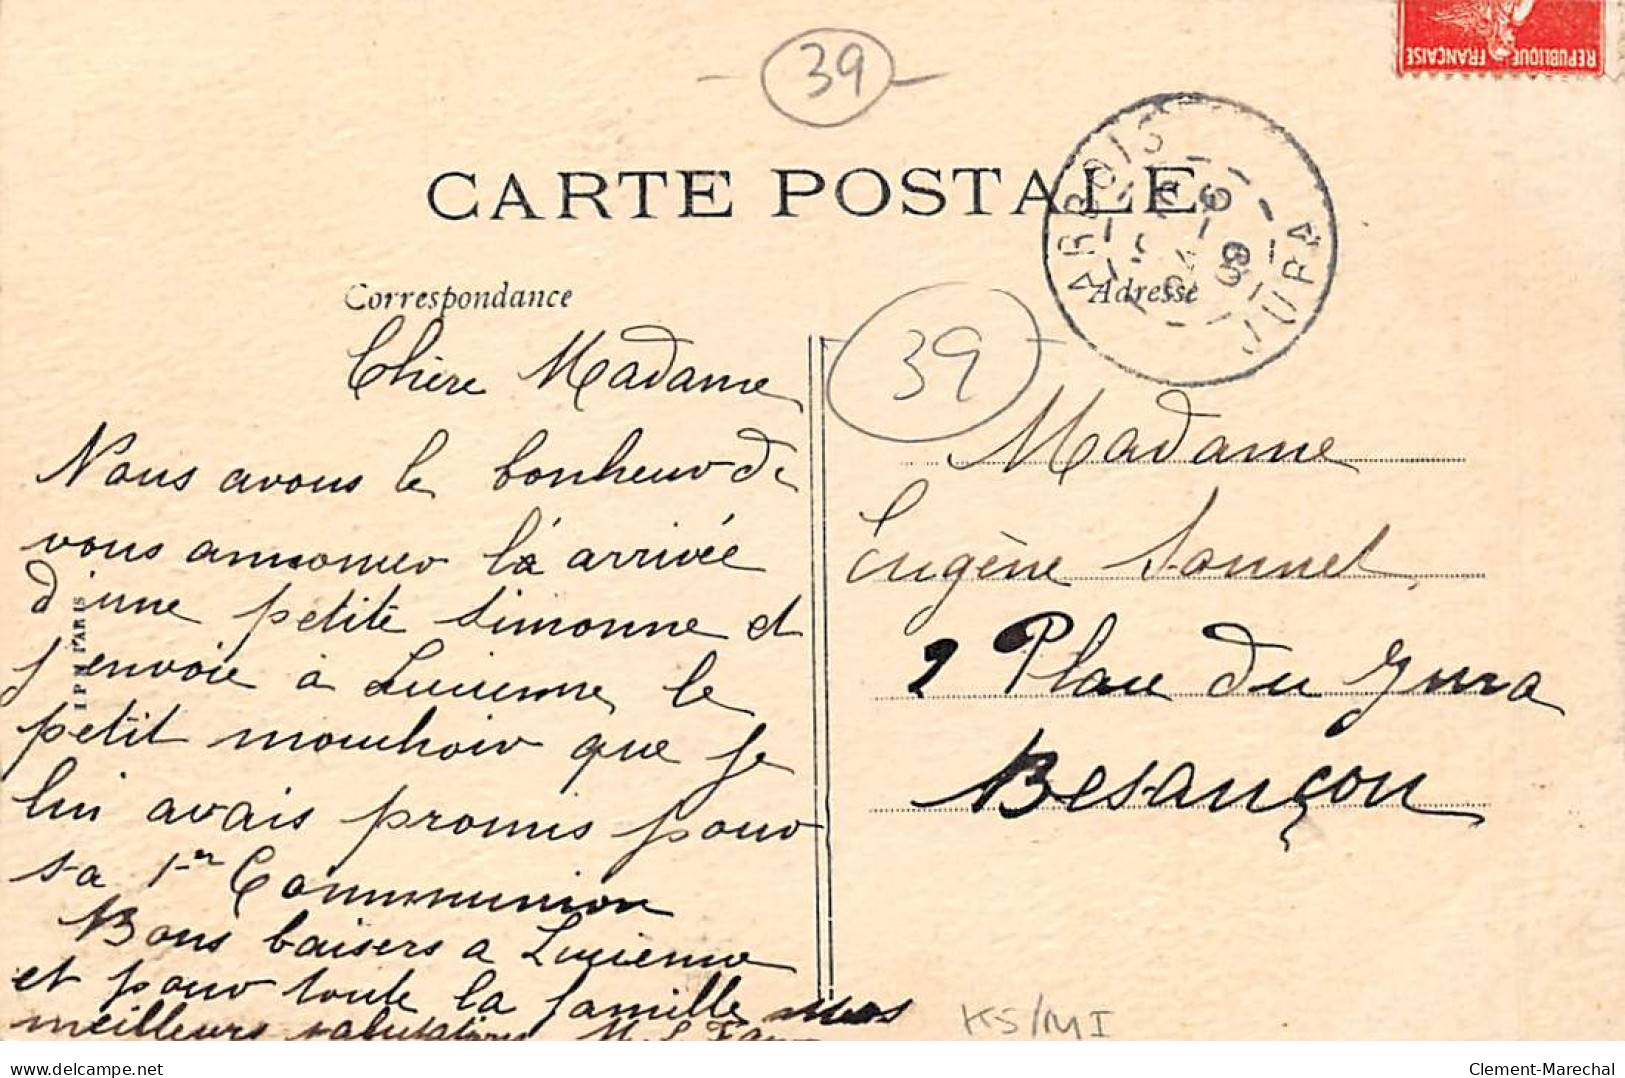 39
REPUBLIQUE FRANÇAISE
CARTE POSTALE
ARBOIS
JURA
09
Correspondance
Adresse
39
Chère Madame
Nous avons le bonheur de
vous annoncer l'arrivée
d'une petite Simonne et
j'envoie à Lucienne, le
petit mouchoir que je
lui avais promis pour
sa 1re Communion
Bons baisers a Lucienne
et pour toute la famille mes
meilleurs salutations
Madame
Eugène Sonnet
2 Place du Jura
Besançon
I P M PARIS
KS/MI
delcampe.net
Clement-Marechal